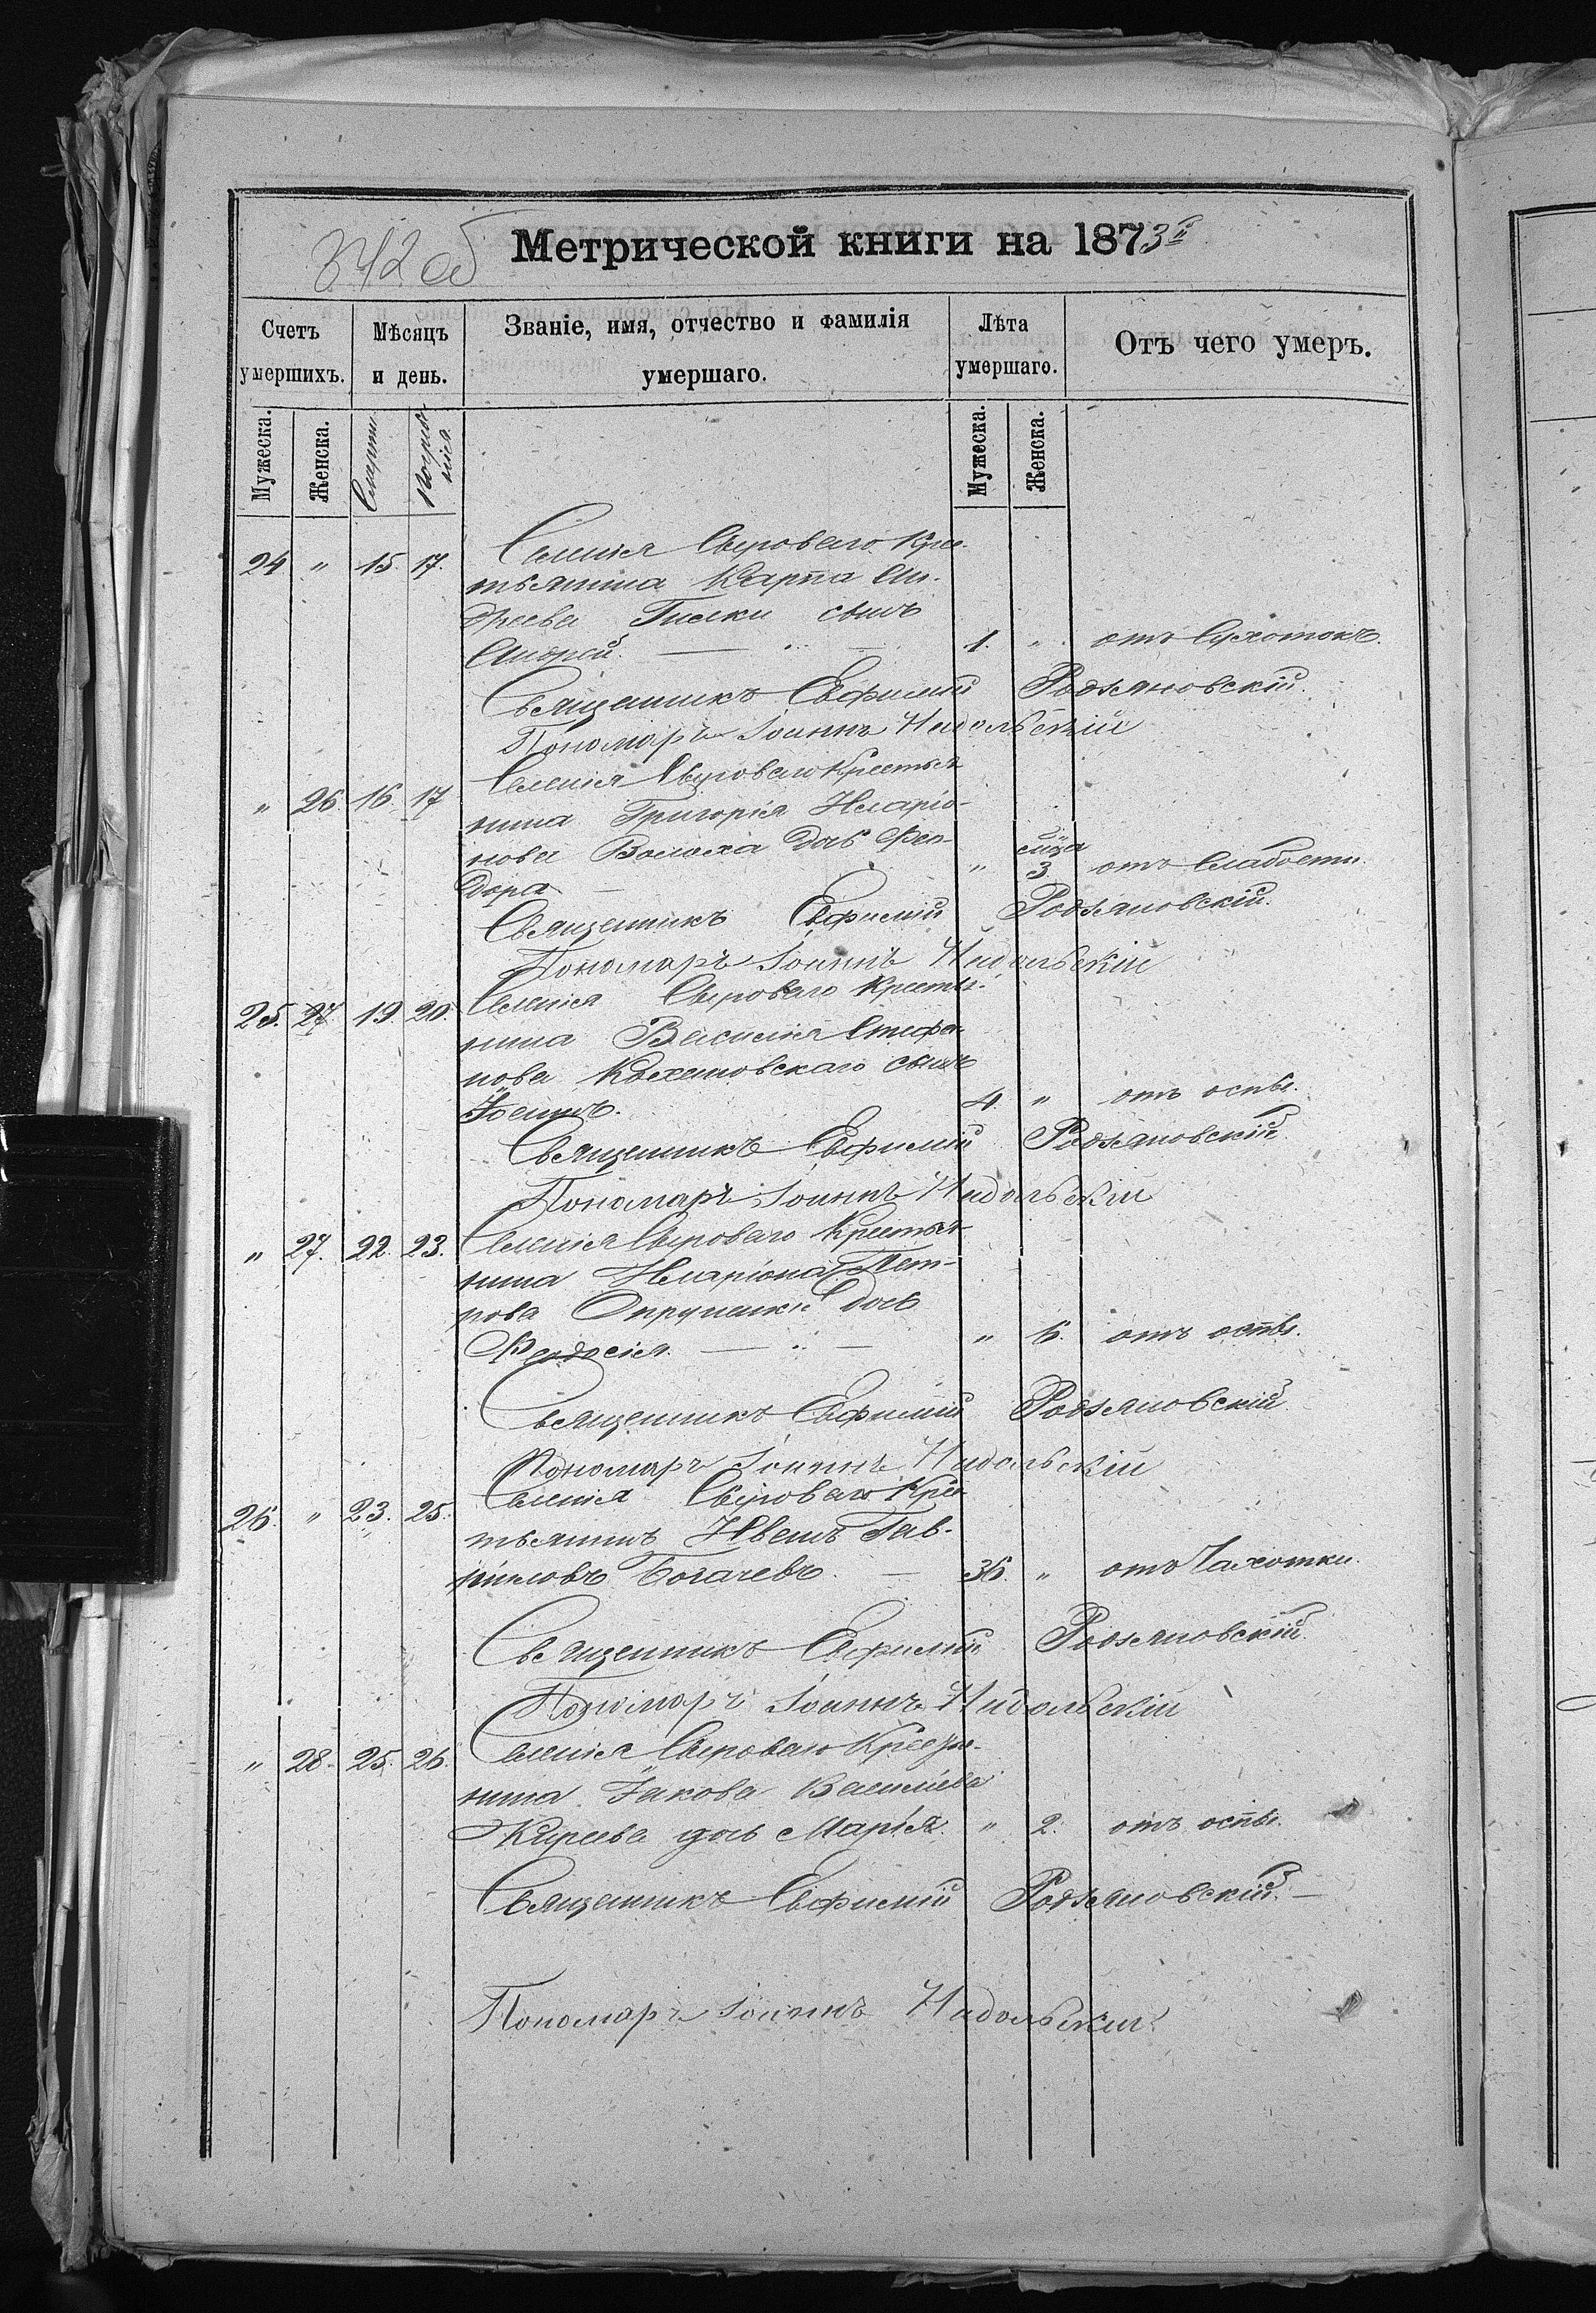 342 об
Метрической книги на 1873й
Счетъ умершихъ.
Мѣсяцъ и день.
Званіе, имя, отчество и фамилія умершаго.
Лѣта умершаго.
Отъ чего умеръ.
Мужеска. Женска. Смерти Погребенія. Мужеска. Женска.
24 " 15 17. Селенія Сыроваго Крес-
тьянина Карпа Ан-
дреева Гиски сынъ
Андрей. 1. " отъ Сухотокъ.
Священникъ Евфимій Родзяновскій.
Пономарь Іоаннъ Надольскій
" 26. 16. 17 Селенія Сыроваго Крестья
нина Григорія Иларіо-
нова Волоха дочь Фео-
дора " 3 отъ слабости.
Священникъ Евфимій Родзяновскій.
Пономарь Іоаннъ Надольскій
25. 27 19. 20. Селенія Сыроваго Крестья-
нина Василія Стефа-
нова Кохановскаго сынъ
Іоаннъ. 4. " отъ оспы.
Священникъ Евфимій Родзяновскій
Пономарь Іоаннъ Надольскій
" 27. 22. 23. Селенія Сыроваго Крестья
нина Иларіона Пет-
рова Опрушки дочь
Феодосія. " 6. отъ оспы.
Священникъ Евфимій Родзяновскій
Пономарь Іоаннъ Надольскій
26. " 23. 25. Селенія Сыроваго Крес
тьянинъ Иванъ Гав-
риловъ Богачевъ. 36. " отъ Чахотки.
Священникъ Евфимій Родзяновскій.
Пономарь Іоаннъ Надольскій
" 28. 25. 26. Селенія Сыроваго Крестья-
нина Іакова Васильева
Киреева дочь Марія. " 2. отъ оспы.
Священникъ Евфимій Родзяновскій.
Пономарь Іоаннъ Надольскій.